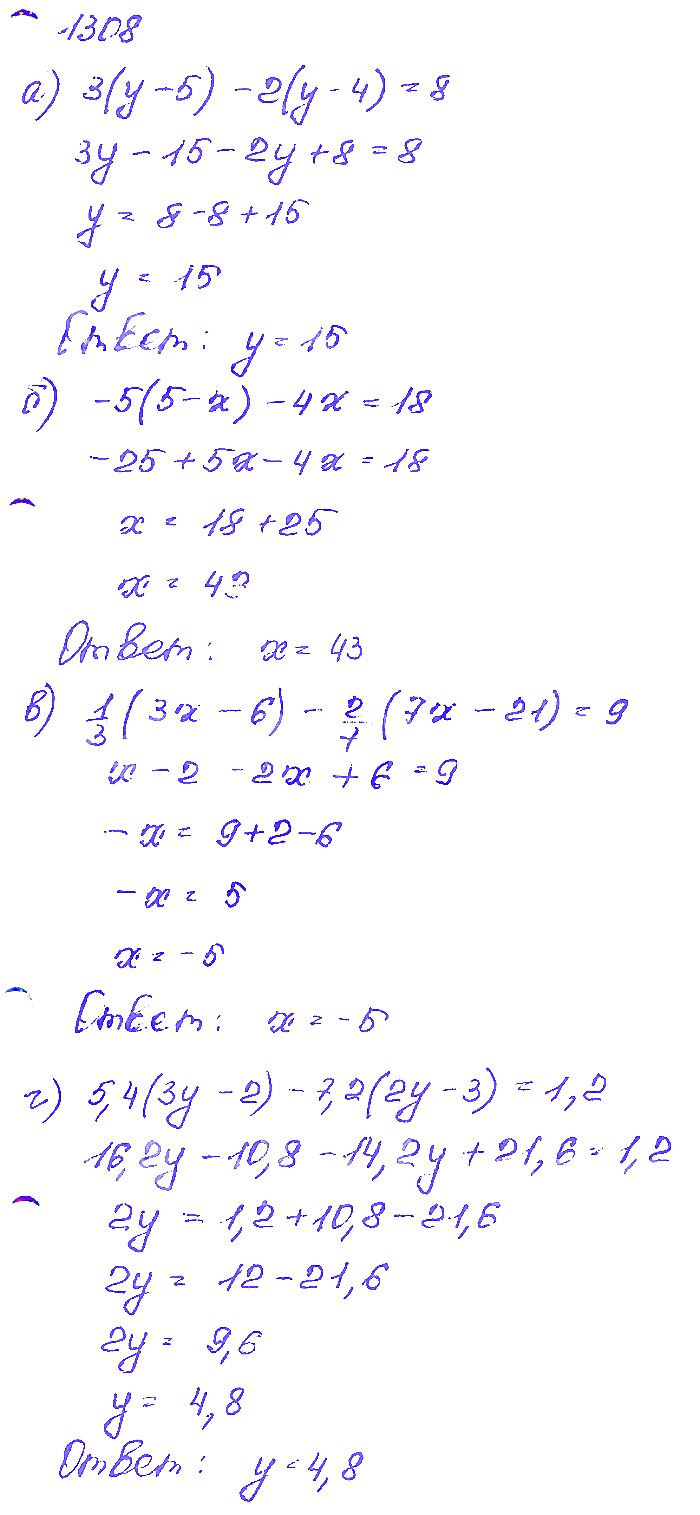 1308
а) 3(y-5) -2(y-4) = 8
3y - 15 - 2y + 8 = 8
y = 8-8+15
y = 15
Ответ: y = 15
б) -5(5-x) -4x = 18
-25 + 5x - 4x = 18
x = 18+25
x = 43
Ответ: x = 43
в) 1/3(3x - 6) - 2/7(7x - 21) = 9
x - 2 -2x + 6 = 9
-x = 9+2-6
-x = 5
x = -5
Ответ: x = -5
г) 5,4(3y - 2) - 7,2(2y - 3) = 1,2
16,2y - 10,8 - 14,2y + 21,6 = 1,2
2y = 1,2 + 10,8 - 21,6
2y = 12 - 21,6
2y = 9,6
y = 4,8
Ответ: y = 4,8